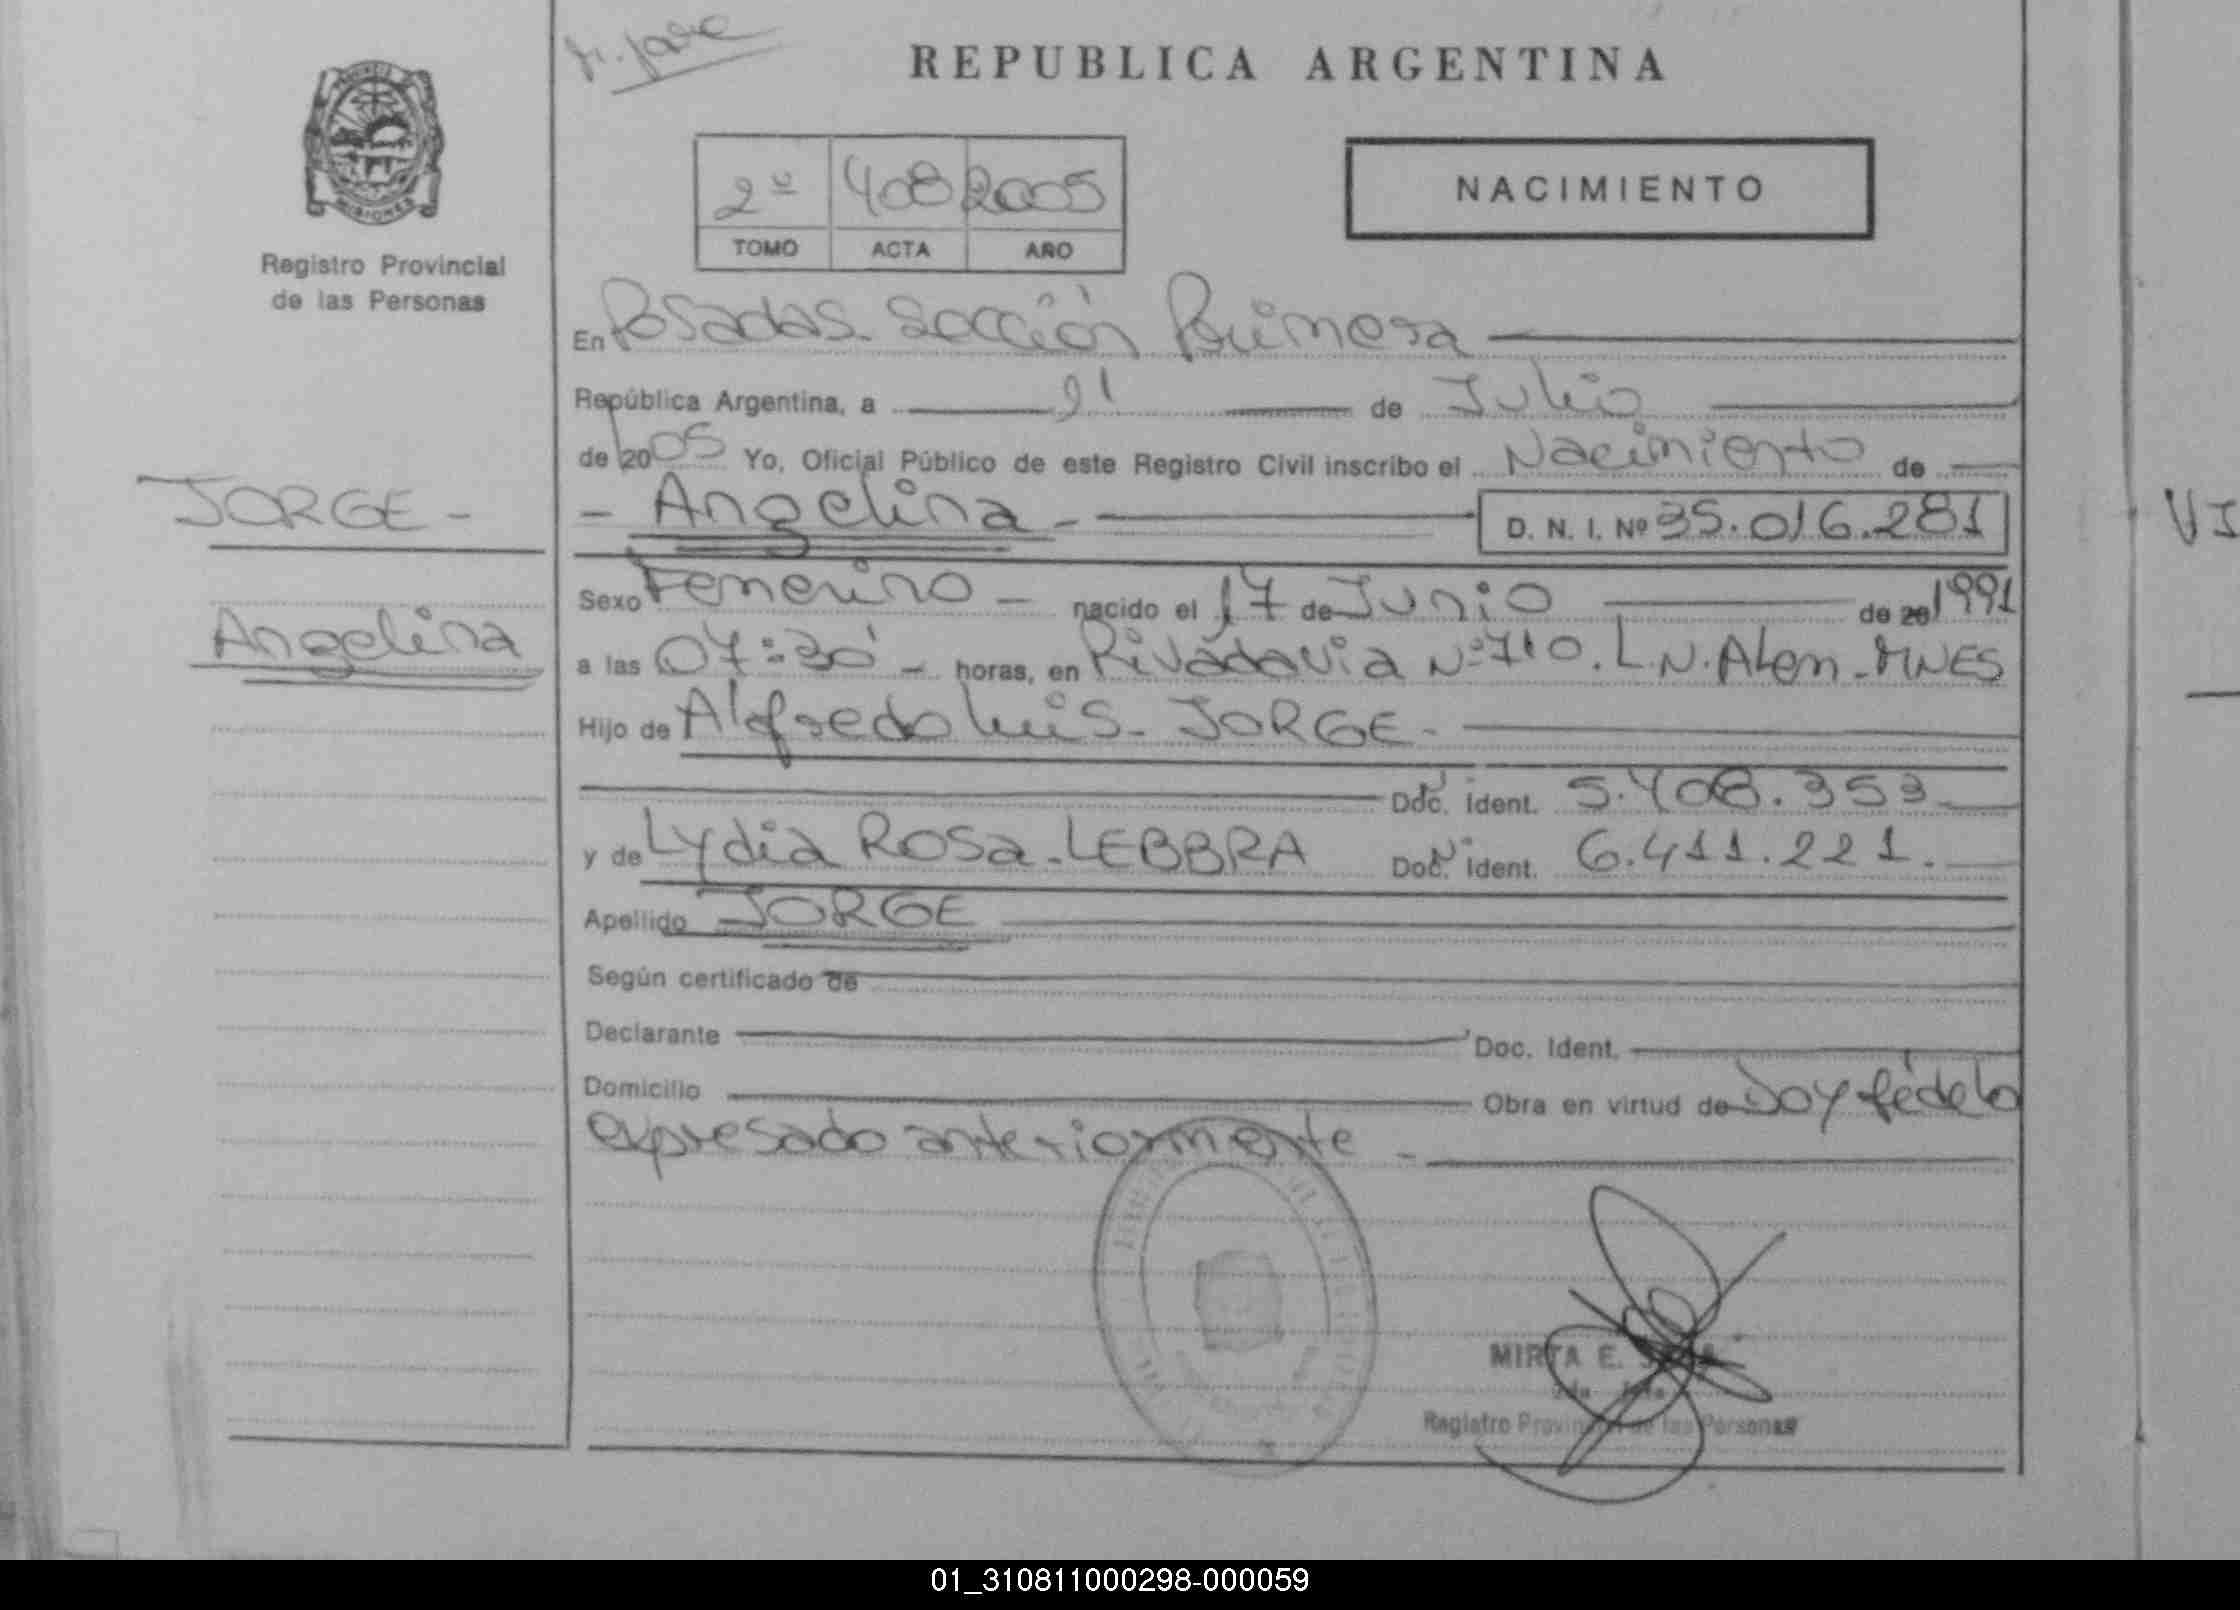 REPUBLICA ARGENTINA
MISIONES
Registro Provincial
de las Personas
2º 408 2005
TOMO ACTA AÑO
NACIMIENTO
En Posadas - Sección Primera
República Argentina, a 21 de Julio
de 2005 Yo, Oficial Público de este Registro Civil inscribo el Nacimiento de
JORGE -
- Angelina - D. N. I. Nº 35.016.281
Sexo Femenino - nacido el 17 de Junio de 20 1991
Angelina
a las 07:30' - horas, en Rivadavia Nº 710. L.N. Alem - MNES
Hijo de Alfredo Luis - JORGE -
Doc. Ident. 5.408.353
y de Lydia Rosa - LEBBRA Doc. Ident. 6.411.221.
Apellido JORGE
Según certificado de
Declarante Doc. Ident.
Domicilio Obra en virtud de Doy fé de lo
expresado anteriormente -
MIRTA E.
Registro Provincial de las Personas
VI
01_310811000298-000059